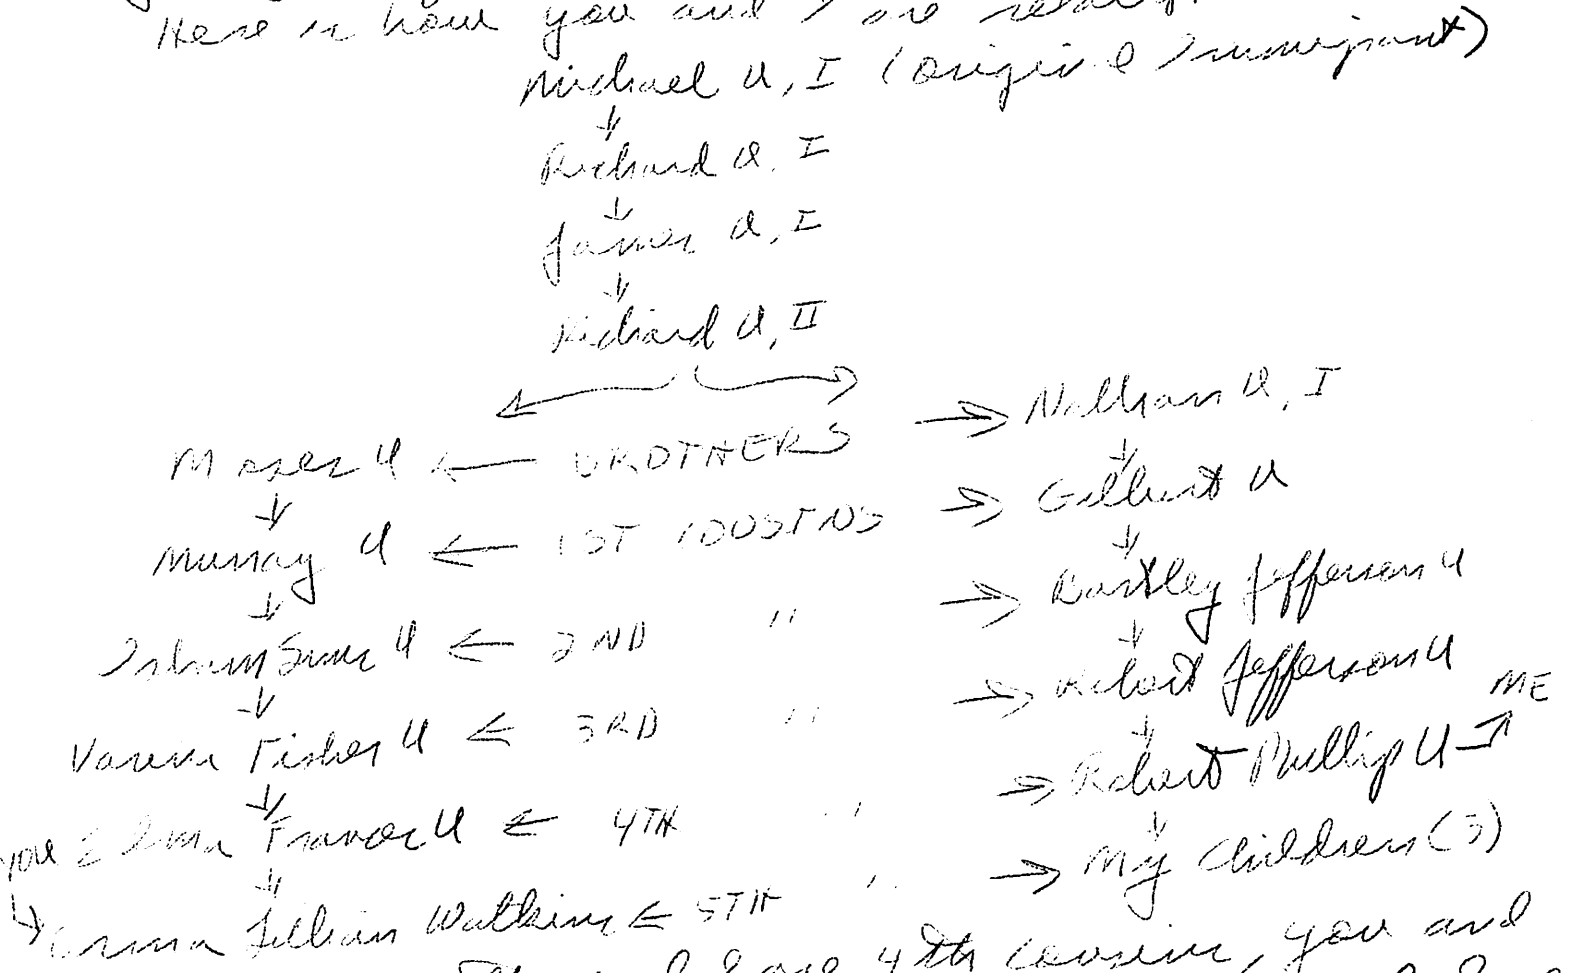 Here is how you and I are
Michael U, I (original Immigrant)
Richard U, I
James U, I
Richard U, II
Moses U ← BROTHERS → Nathan U, I
Murray U ← 1ST COUSINS → Gilbert U
U ← 2ND " → Bartley Jefferson U
Fisher U ← 3RD " → Robert Jefferson U
Frances U ← 4TH " → Robert Phillip U → ME
Lillian Watkins ← 5TH " → My Children (3)
4th cousins, you and